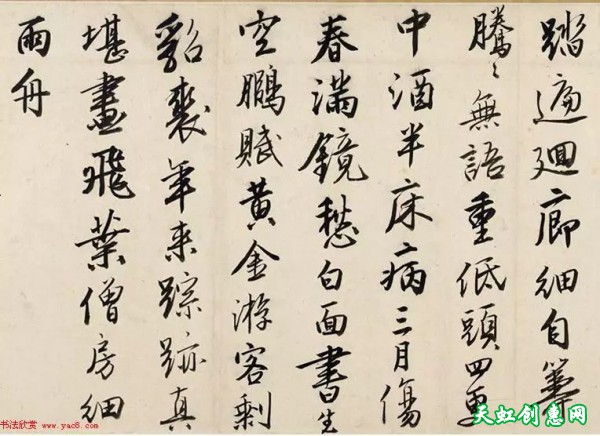 踏遍迴廊細自籌
騰〻無語重低頭四更
中酒半床病三月傷
春滿鏡愁白面書生
空鵬賦黃金游客剩
貂裘年来踪跡真
堪畫飛葉僧房細
雨舟
书法欣赏 www.yac8.com
天虹创意网